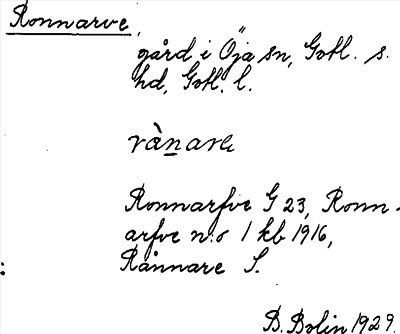 Ronnarve,
gård i Öja sn, Gotl. s.
hd, Gotl. l.
Ronnarfve G 23, Ronn-
arfve n:o 1 kb 1916,
Rånnare S.
B. Bolin 1929.